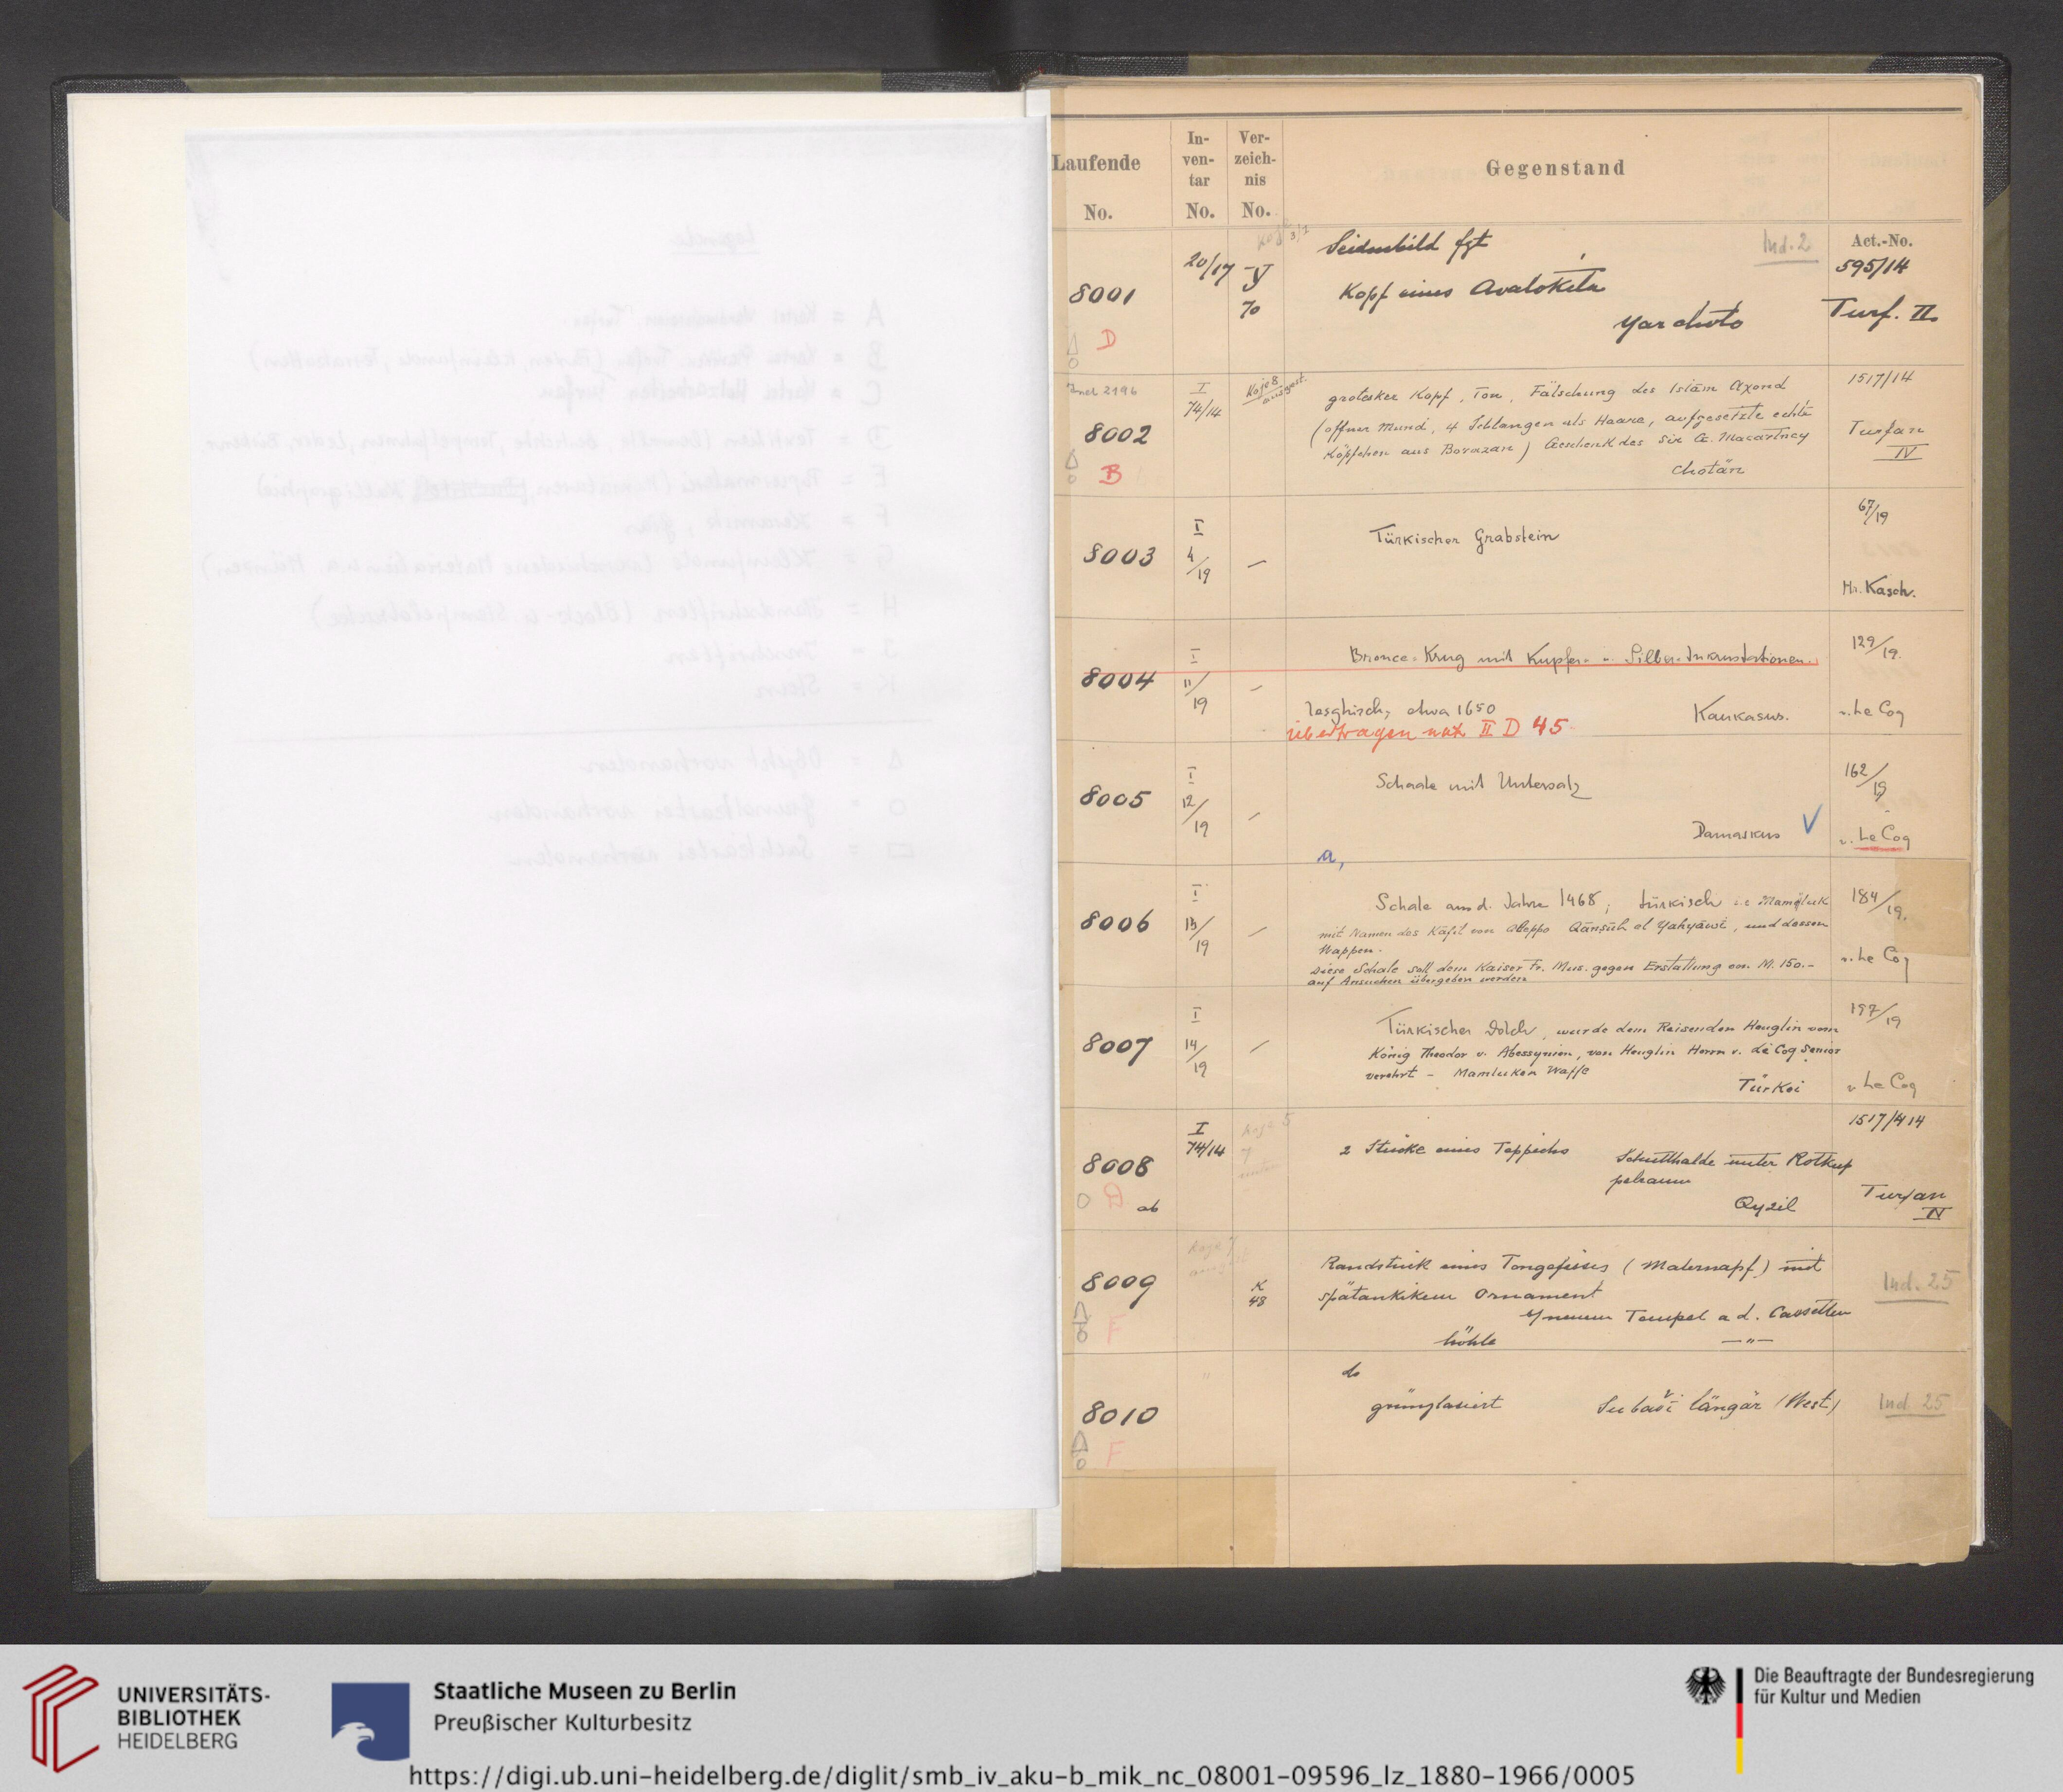 Laufende
No.
In-
ven-
tar
No.
Ver-
zeich-
nis
No.
Gegenstand
Act.-No.
8001
D
20/17
V
70
Seidenbild fgt
Kopf eines Avalokita
Yarchoto
Ind. 2
595/14
Turf. II.
8002
B
I
74/14
Koje 8
grotesker Kopf, Ton, Fälschung des Islām Axond
(offner Mund, 4 Schlangen als Haare, aufgesetzte echte
Köpfchen aus Borazan) Geschenk des Sir G. Macartney
Chotän
1517/14
Turfan
IV
8003
I
4/19
—
Türkischer Grabstein
67/19
Kasch.
8004
I
11/19
—
Bronce-Krug mit Kupfer- u. Silber-Inkrustationen.
lesghisch, etwa 1650
Kaukasus.
übertragen II D 45
129/19.
v. Le Coq
8005
I
12/19
—
Schaale mit Untersatz
Damaskus
V
162/19
v. Le Coq
a,
8006
I
13/19
—
Schale aus d. Jahre 1468; türkisch Mamelu
mit Namen des Käfil von Aleppo Qānṣūh el Yahyāwī, und dessen
Wappen.
Diese Schale soll dem Kaiser Fr. Mus. gegen Erstattung von M. 150.-
auf Ansuchen übergeben werden
184/19.
v. Le Coq
8007
I
14/19
—
Türkischer Dolch, wurde dem Reisenden Heuglin vom
König Theodor v. Abessynien, von Heuglin Herrn v. Le Coq senior
verehrt - Mamluken Waffe
Türkei
197/19
v Le Coq
8008
ab
D
I
74/14
2 Stücke eines Teppichs
Schutthalde unter Rotkup
pelraum
Qyzil
1517/14
Turfan
IV
8009
F
K
48
Randstück eines Tongefässes (Malernapf) mit
spätantikem Ornament
Tempel a d. Cassetten
höhle
—"—
Ind. 25
8010
F
do
grünglasiert
Subaši längär (West)
Ind. 25
UNIVERSITÄTS-
BIBLIOTHEK
HEIDELBERG
Staatliche Museen zu Berlin
Preußischer Kulturbesitz
Die Beauftragte der Bundesregierung
für Kultur und Medien
https://digi.ub.uni-heidelberg.de/diglit/smb_iv_aku-b_mik_nc_08001-09596_lz_1880-1966/0005